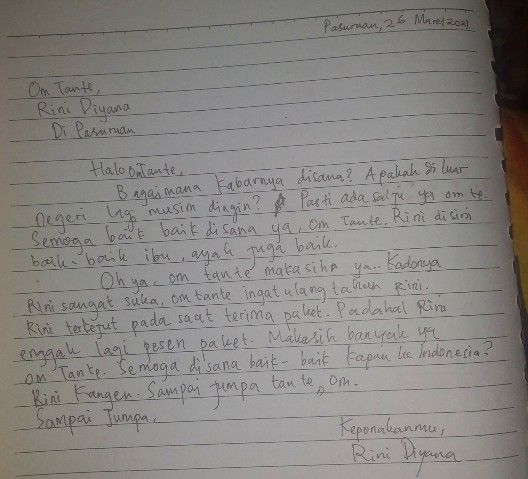 Pasuruan, 26 Maret 2021
Om Tante,
Rini Diyana
Di Pasuruan
Halo Om Tante,
Bagaimana kabarnya disana? Apakah di luar
negeri lagi musim dingin? Pasti ada salju ya om te.
Semoga baik baik disana ya, Om Tante. Rini disini
baik-baik ibu, ayah juga baik.
Oh ya, om tante makasihn ya... Kadonya
Rini sangat suka, om tante ingat ulang tahun Rini.
Rini terkejut pada saat terima paket. Padahal Rini
enggak lagi pesen paket. Makasih banyak ya
om Tante. Semoga disana baik-baik kapan ke Indonesia?
Rini Kangen. Sampai jumpa tante, Om.
Sampai Jumpa,
Keponakanmu,
Rini Diyana